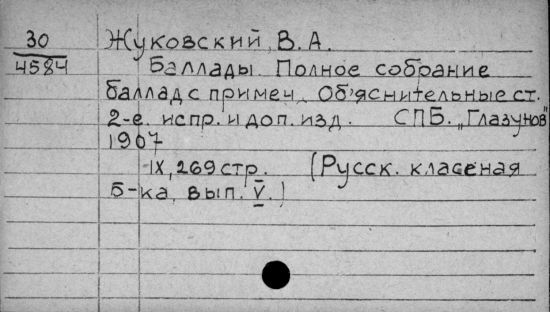 30
4584
Жуковский, В.А.
Баллады. Полное собрание
баллад с примеч. Об'яснительные ст.
2-е. испр. и доп. изд. СПБ. „Глазунов"
1907
IX, 269 стр. (Русск. класеная
Б-ка, вып. V.)